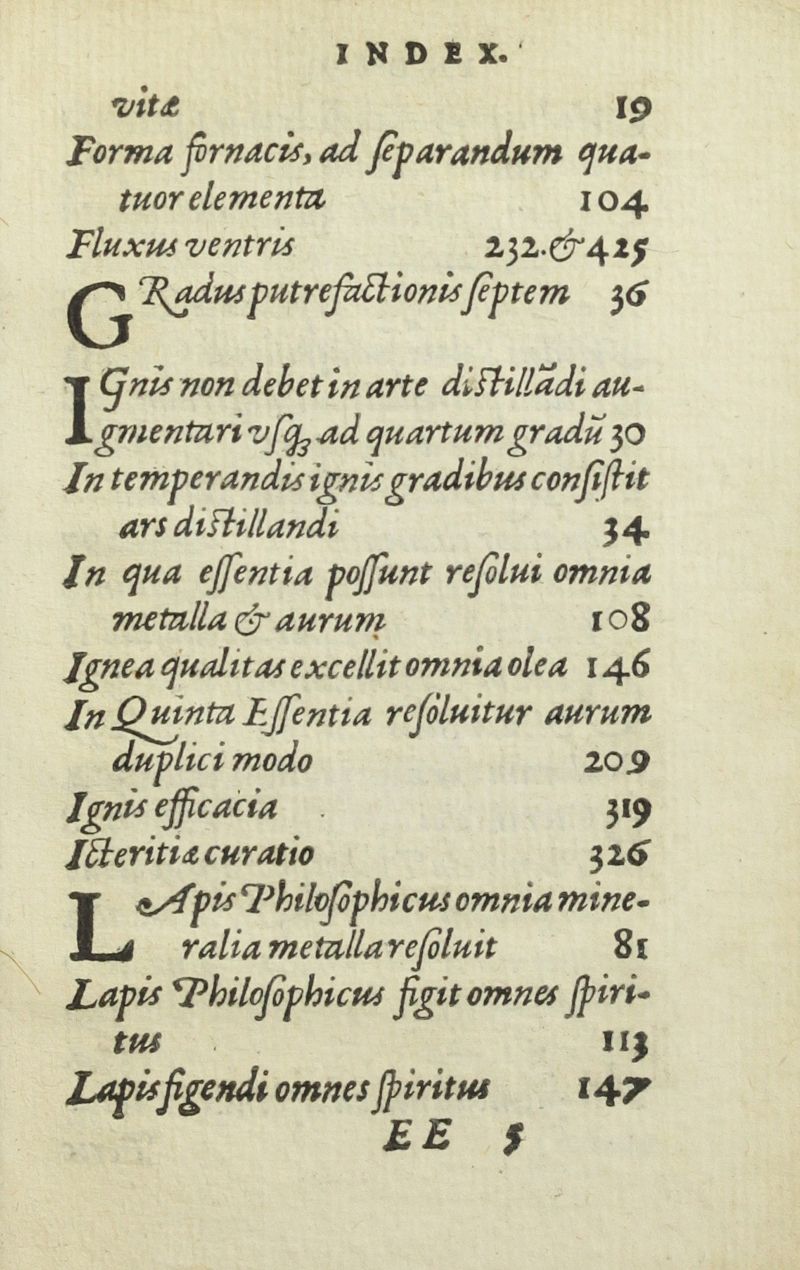 INDEX.
vitæ 19
Forma fornacis, ad ſeparandum qua-
tuor elementa 104
Fluxus ventris 232.&425
GRadus putrefactionis ſeptem 36
IGnis non debet in arte diſtillādi au-
gmentari vſqꝫ ad quartum gradū 30
In temperandis ignis gradibus conſiſtit
ars diſtillandi 34
In qua eſſentia poſſunt reſolui omnia
metalla & aurum 108
Ignea qualitas excellit omnia olea 146
In Quinta Eſſentia reſoluitur aurum
duplici modo 209
Ignis efficacia 319
Icteritiæ curatio 326
LApis Philoſophicus omnia mine-
ralia metalla reſoluit 81
Lapis Philoſophicus figit omnes ſpiri-
tus 113
Lapis figendi omnes ſpiritus 147
EE 5